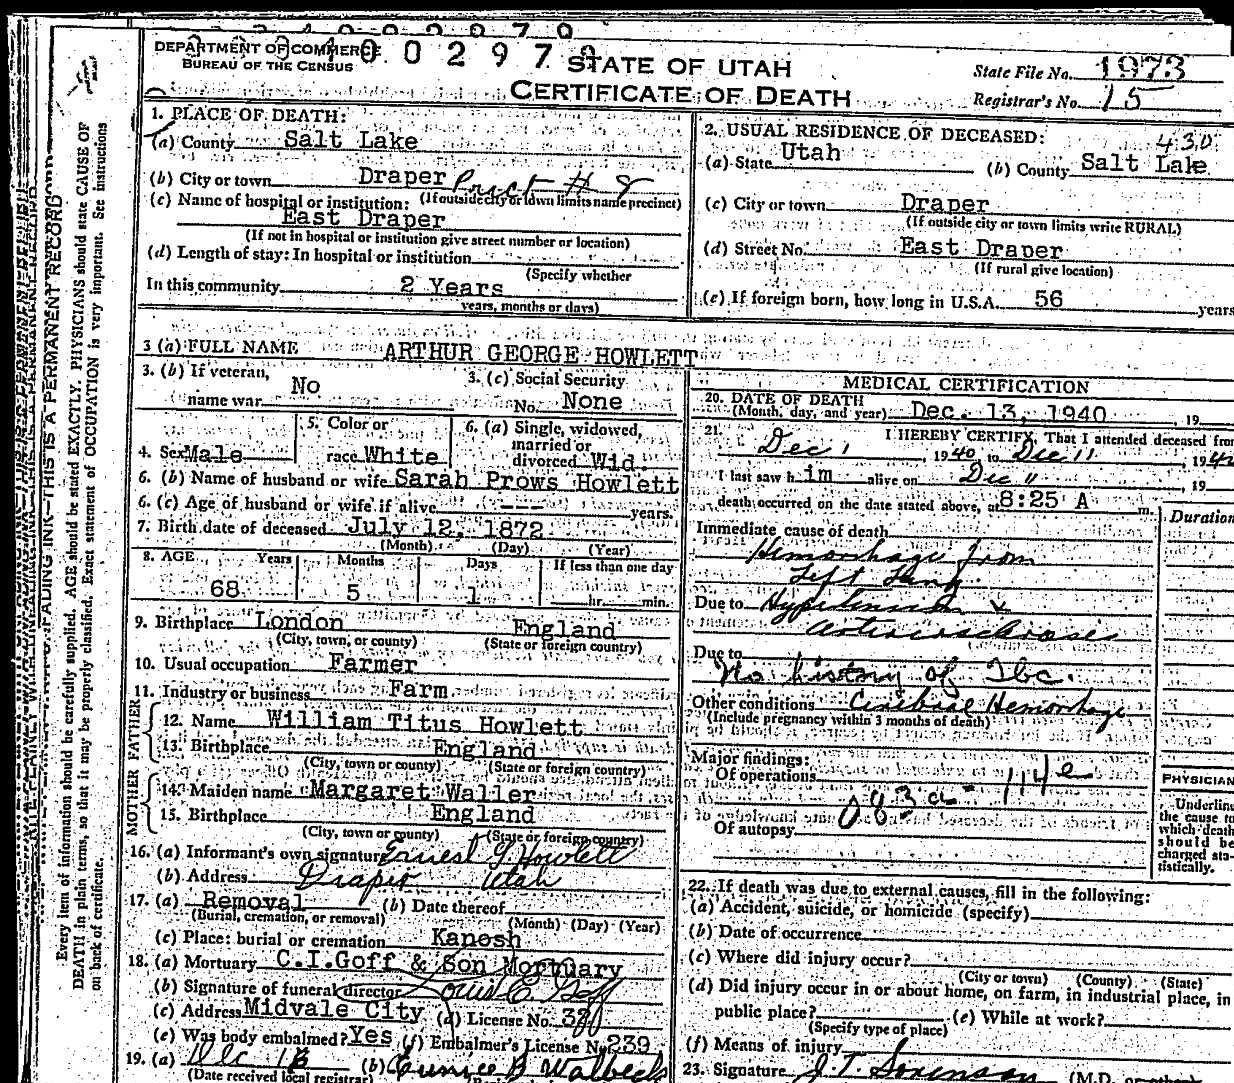 DEPARTMENT OF COMMERCE
BUREAU OF THE CENSUS
0 0 2 9 7 9
STATE OF UTAH
CERTIFICATE OF DEATH
State File No. 1973
Registrar's No. 15
1. PLACE OF DEATH:
(a) County Salt Lake
(b) City or town Draper Prect # 8
(If outside city or town limits name precinct)
(c) Name of hospital or institution:
East Draper
(If not in hospital or institution give street number or location)
(d) Length of stay: In hospital or institution
(Specify whether
In this community 2 Years
years, months or days)
2. USUAL RESIDENCE OF DECEASED: 430
(a) State Utah (b) County Salt Lake
(c) City or town Draper
(If outside city or town limits write RURAL)
(d) Street No. East Draper
(If rural give location)
(e) If foreign born, how long in U.S.A. 56 years
3 (a) FULL NAME ARTHUR GEORGE HOWLETT
3. (b) If veteran, name war No
3. (c) Social Security No. None
4. Sex Male
5. Color or race White
6. (a) Single, widowed, married or divorced Wid.
6. (b) Name of husband or wife Sarah Prows Howlett
6. (c) Age of husband or wife if alive --- years.
7. Birth date of deceased July 12, 1872
(Month) (Day) (Year)
8. AGE Years Months Days If less than one day
68 5 1 hr. min.
9. Birthplace London England
(City, town, or county) (State or foreign country)
10. Usual occupation Farmer
11. Industry or business Farm
FATHER
12. Name William Titus Howlett
13. Birthplace England
(City, town or county) (State or foreign country)
MOTHER
14. Maiden name Margaret Waller
15. Birthplace England
(City, town or county) (State or foreign country)
16. (a) Informant's own signature Ernest G Howlett
(b) Address Draper Utah
17. (a) Removal (b) Date thereof
(Burial, cremation, or removal) (Month) (Day) (Year)
(c) Place: burial or cremation Kanosh
18. (a) Mortuary C.I.Goff & Son Mortuary
(b) Signature of funeral director Louis C. Goff
(c) Address Midvale City (d) License No.
(e) Was body embalmed? Yes (f) Embalmer's License No. 239
19. (a) Dec (b) Eunice B Walbeck
(Date received local registrar)
MEDICAL CERTIFICATION
20. DATE OF DEATH
(Month, day, and year) Dec. 13, 1940, 19
21. I HEREBY CERTIFY, That I attended deceased from
Dec 1, 1940 to Dec 11, 1940
I last saw him alive on Dec 11, 19
death occurred on the date stated above, at 8:25 A m.
Duration
Immediate cause of death
Hemorrhage from
Left Lung.
Due to Hypertension &
arteriosclerosis
Due to
No history of Tbc.
Other conditions Cerebral Hemorrhage
(Include pregnancy within 3 months of death)
Major findings:
Of operations 114e
083a
Of autopsy
PHYSICIAN
Underline
the cause to
which death
should be
charged sta-
tistically.
22. If death was due to external causes, fill in the following:
(a) Accident, suicide, or homicide (specify)
(b) Date of occurrence
(c) Where did injury occur?
(City or town) (County) (State)
(d) Did injury occur in or about home, on farm, in industrial place, in
public place? (e) While at work?
(Specify type of place)
(f) Means of injury
23. Signature J. T. Sorenson (M.D. or
Every item of information should be carefully supplied. AGE should be stated EXACTLY. PHYSICIANS should state CAUSE OF
DEATH in plain terms, so that it may be properly classified. Exact statement of OCCUPATION is very important. See instructions
on back of certificate.
FADING INK—THIS IS A PERMANENT RECORD